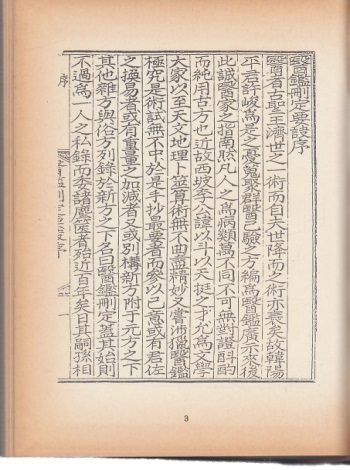 醫鑑刪定要訣序
醫者古聖王濟世之一術而自夫世降而之術亦喪矣故韓陽
平君許峻爲是之憂蒐聚群醫已驗之方編爲醫鑑廣示來後
此誠醫家之指南然凡人之爲病類萬不同不可無對證酙酌
而純用古方也近故西坡李公諱以斗以天挺之才允爲文學
大家以至天文地理卜筮算術無不曲盡精妙又嘗沛獵醫鑑
極究是術試無不中於是手抄最要者而參以己意或有君佐
之換易者或有重量之加減者又或別構新方附于元方之下
其他雜方與俗方列錄於新方之下名曰醫鑑刪定蓋其始則
不過爲一人之私錄而委諸塵篋者殆近百年矣日其嗣孫相
序
醫鑑刪定要訣序
一
3